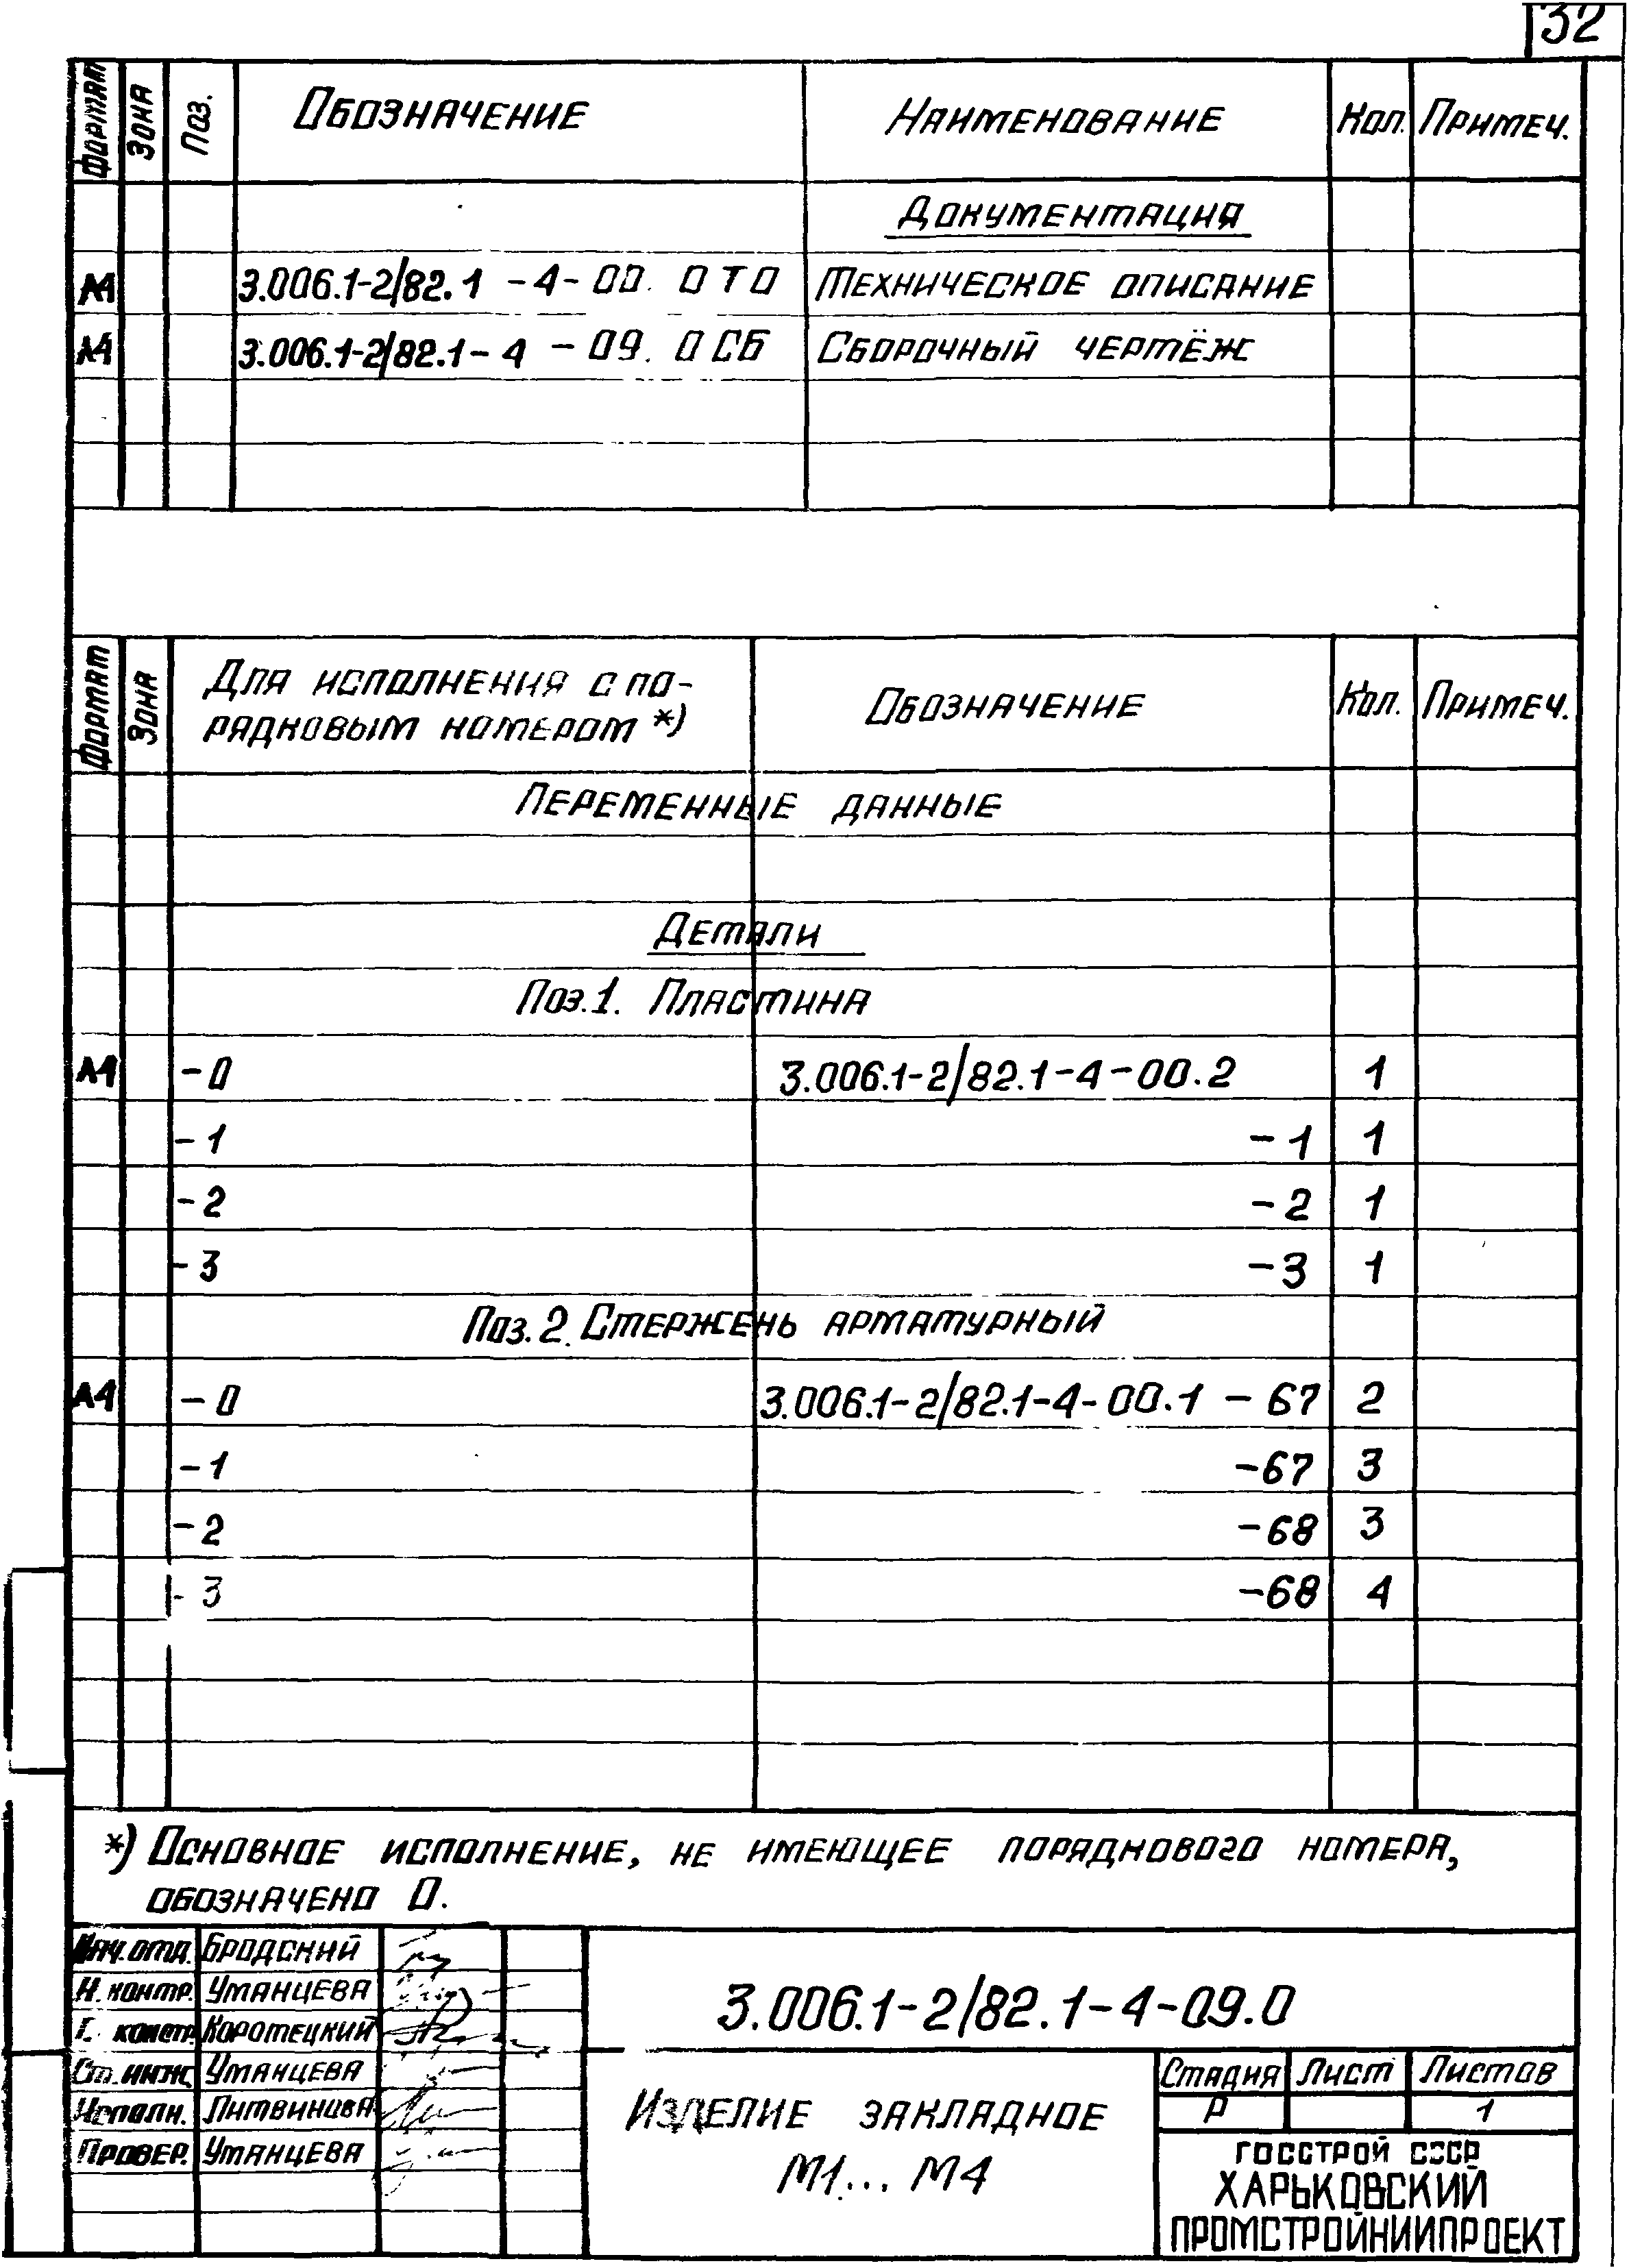 32
Формат Зона Поз. Обозначение Наименование Кол. Примеч.
Документация
А4 3.006.1-2/82.1-4-00.0ТО Техническое описание
А4 3.006.1-2/82.1-4-09.0СБ Сборочный чертёж
Формат Зона Для исполнения с по- Обозначение Кол. Примеч.
рядковым номером *)
Переменные данные
Детали
Поз.1. Пластина
А4 -0 3.006.1-2/82.1-4-00.2 1
-1 -1 1
-2 -2 1
-3 -3 1
Поз.2. Стержень арматурный
А4 -0 3.006.1-2/82.1-4-00.1-67 2
-1 -67 3
-2 -68 3
-3 -68 4
*) Основное исполнение, не имеющее порядкового номера,
обозначено 0.
Нач.отд. Бродский
Н.контр. Уманцева
Г. констр. Коротецкий
Ст.инж. Уманцева
Исполн. Литвинова
Провер. Уманцева
3.006.1-2/82.1-4-09.0
Изделие закладное
М1... М4
Стадия Лист Листов
Р 1
ГОССТРОЙ СССР
ХАРЬКОВСКИЙ
ПРОМСТРОЙНИИПРОЕКТ